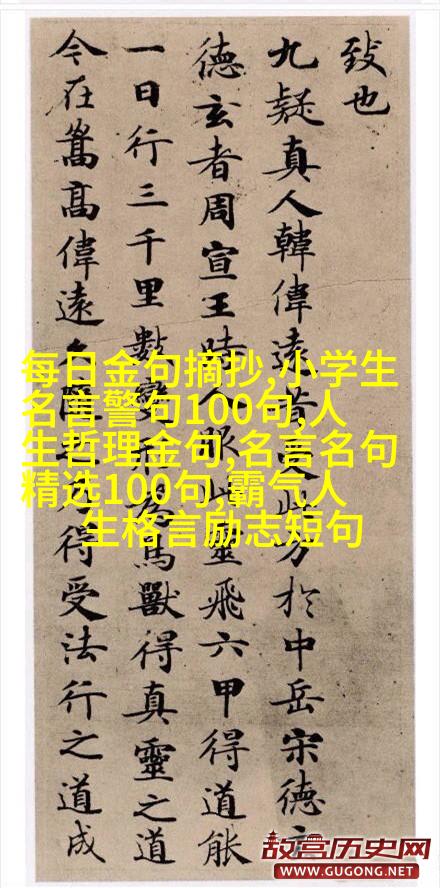 致也
九疑真人韓偉遠昔受此方於中岳宋德玄
德玄者周宣王時人服此靈飛六甲得道能
一日行三千里數變形為鳥獸得真靈之道
今在嵩高偉遠久隨之乃得受法行之道成
每日金句摘抄,小学生
名言警句100句,人
生哲理金句,名言名句
精选100句,霸气人
生格言励志短句
故宫历史网
WWW.GUGONG.NET